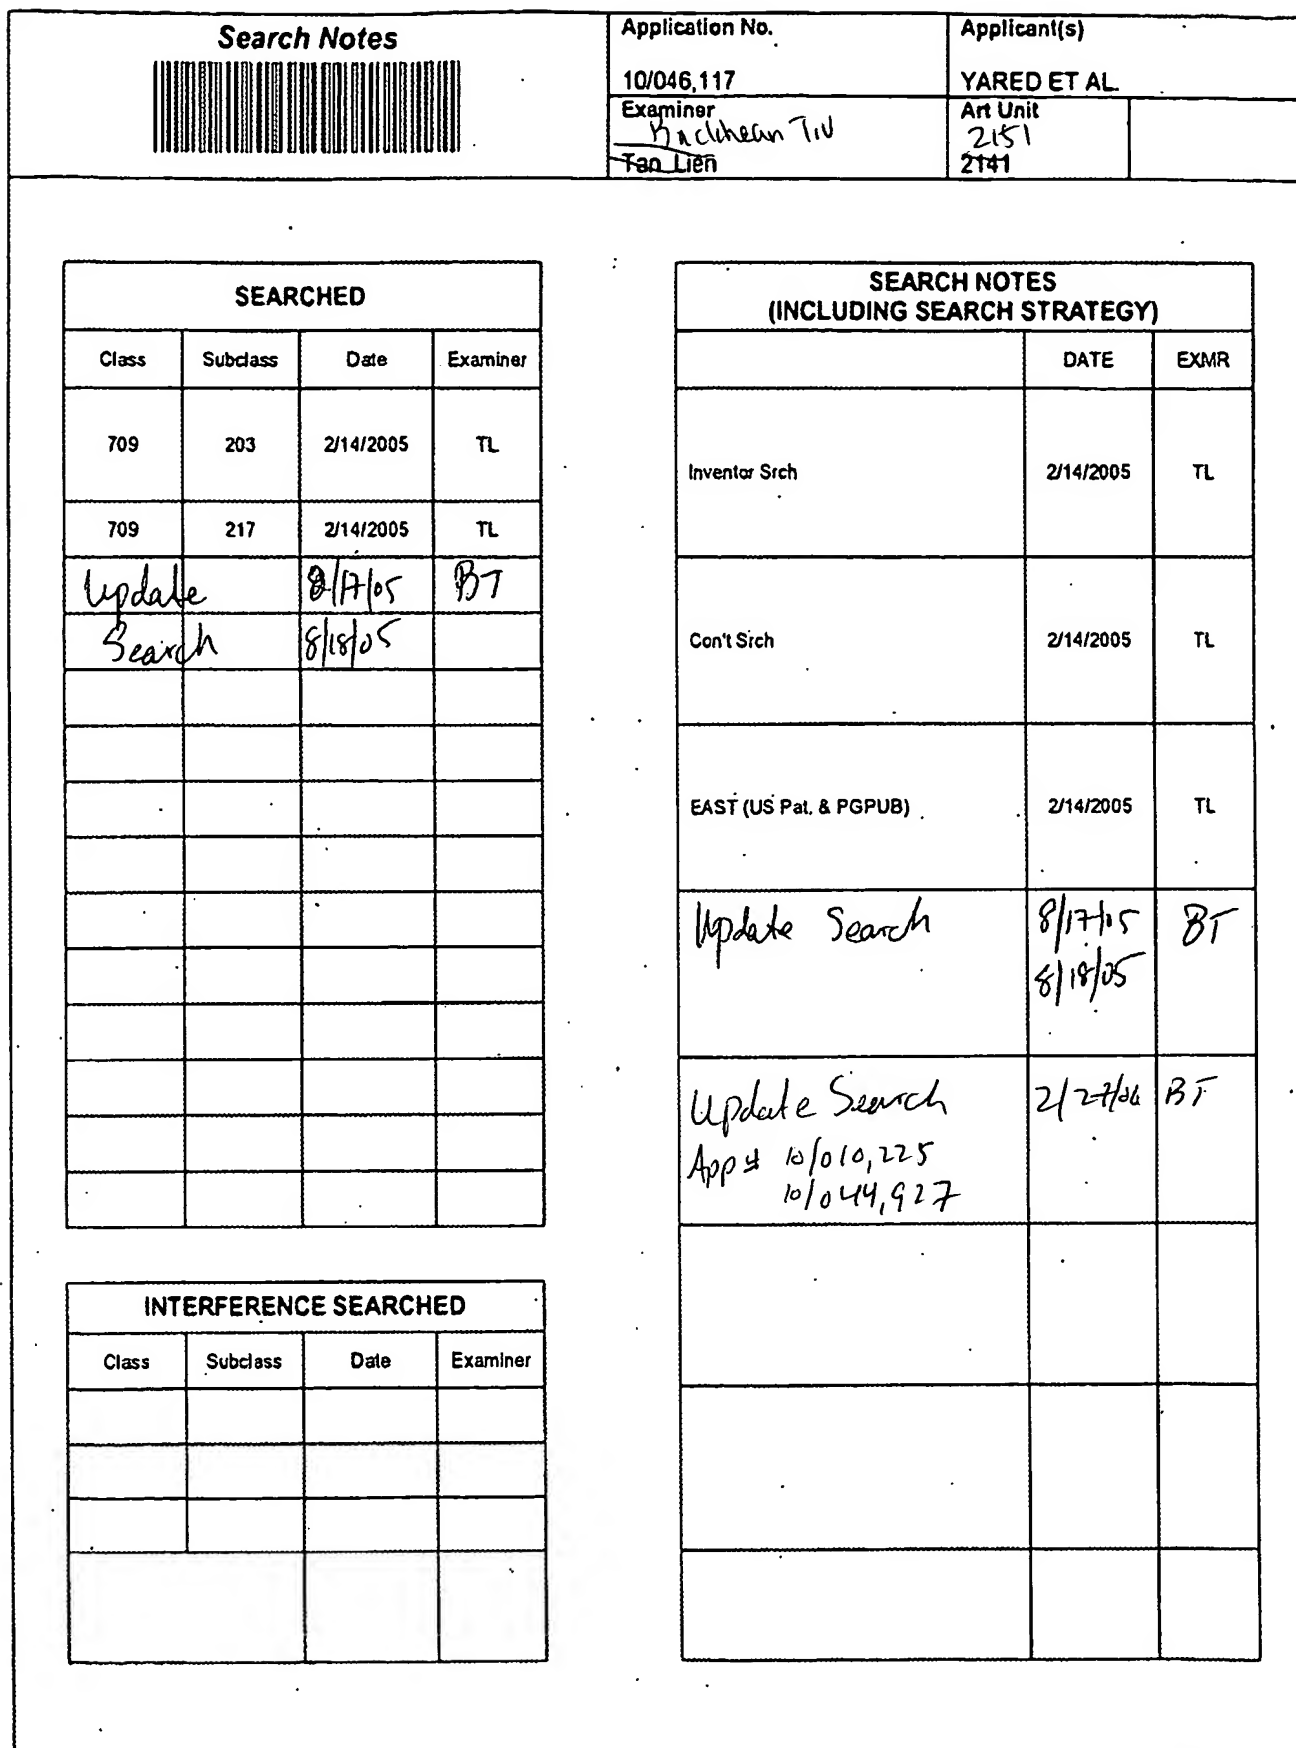 Search Notes
Application No.
10/046,117
Applicant(s)
YARED ET AL.
Examiner
Backhean Tiv
Tan Lien
Art Unit
2151
2141
SEARCHED
Class Subclass Date Examiner
709 203 2/14/2005 TL
709 217 2/14/2005 TL
Update 8/17/05 BT
Search 8/18/05
INTERFERENCE SEARCHED
Class Subclass Date Examiner
SEARCH NOTES
(INCLUDING SEARCH STRATEGY)
DATE EXMR
Inventor Srch 2/14/2005 TL
Con't Srch 2/14/2005 TL
EAST (US Pat. & PGPUB) 2/14/2005 TL
Update Search 8/17/05 BT
8/18/05
Update Search 2/27/06 BT
App # 10/010,225
10/044,927